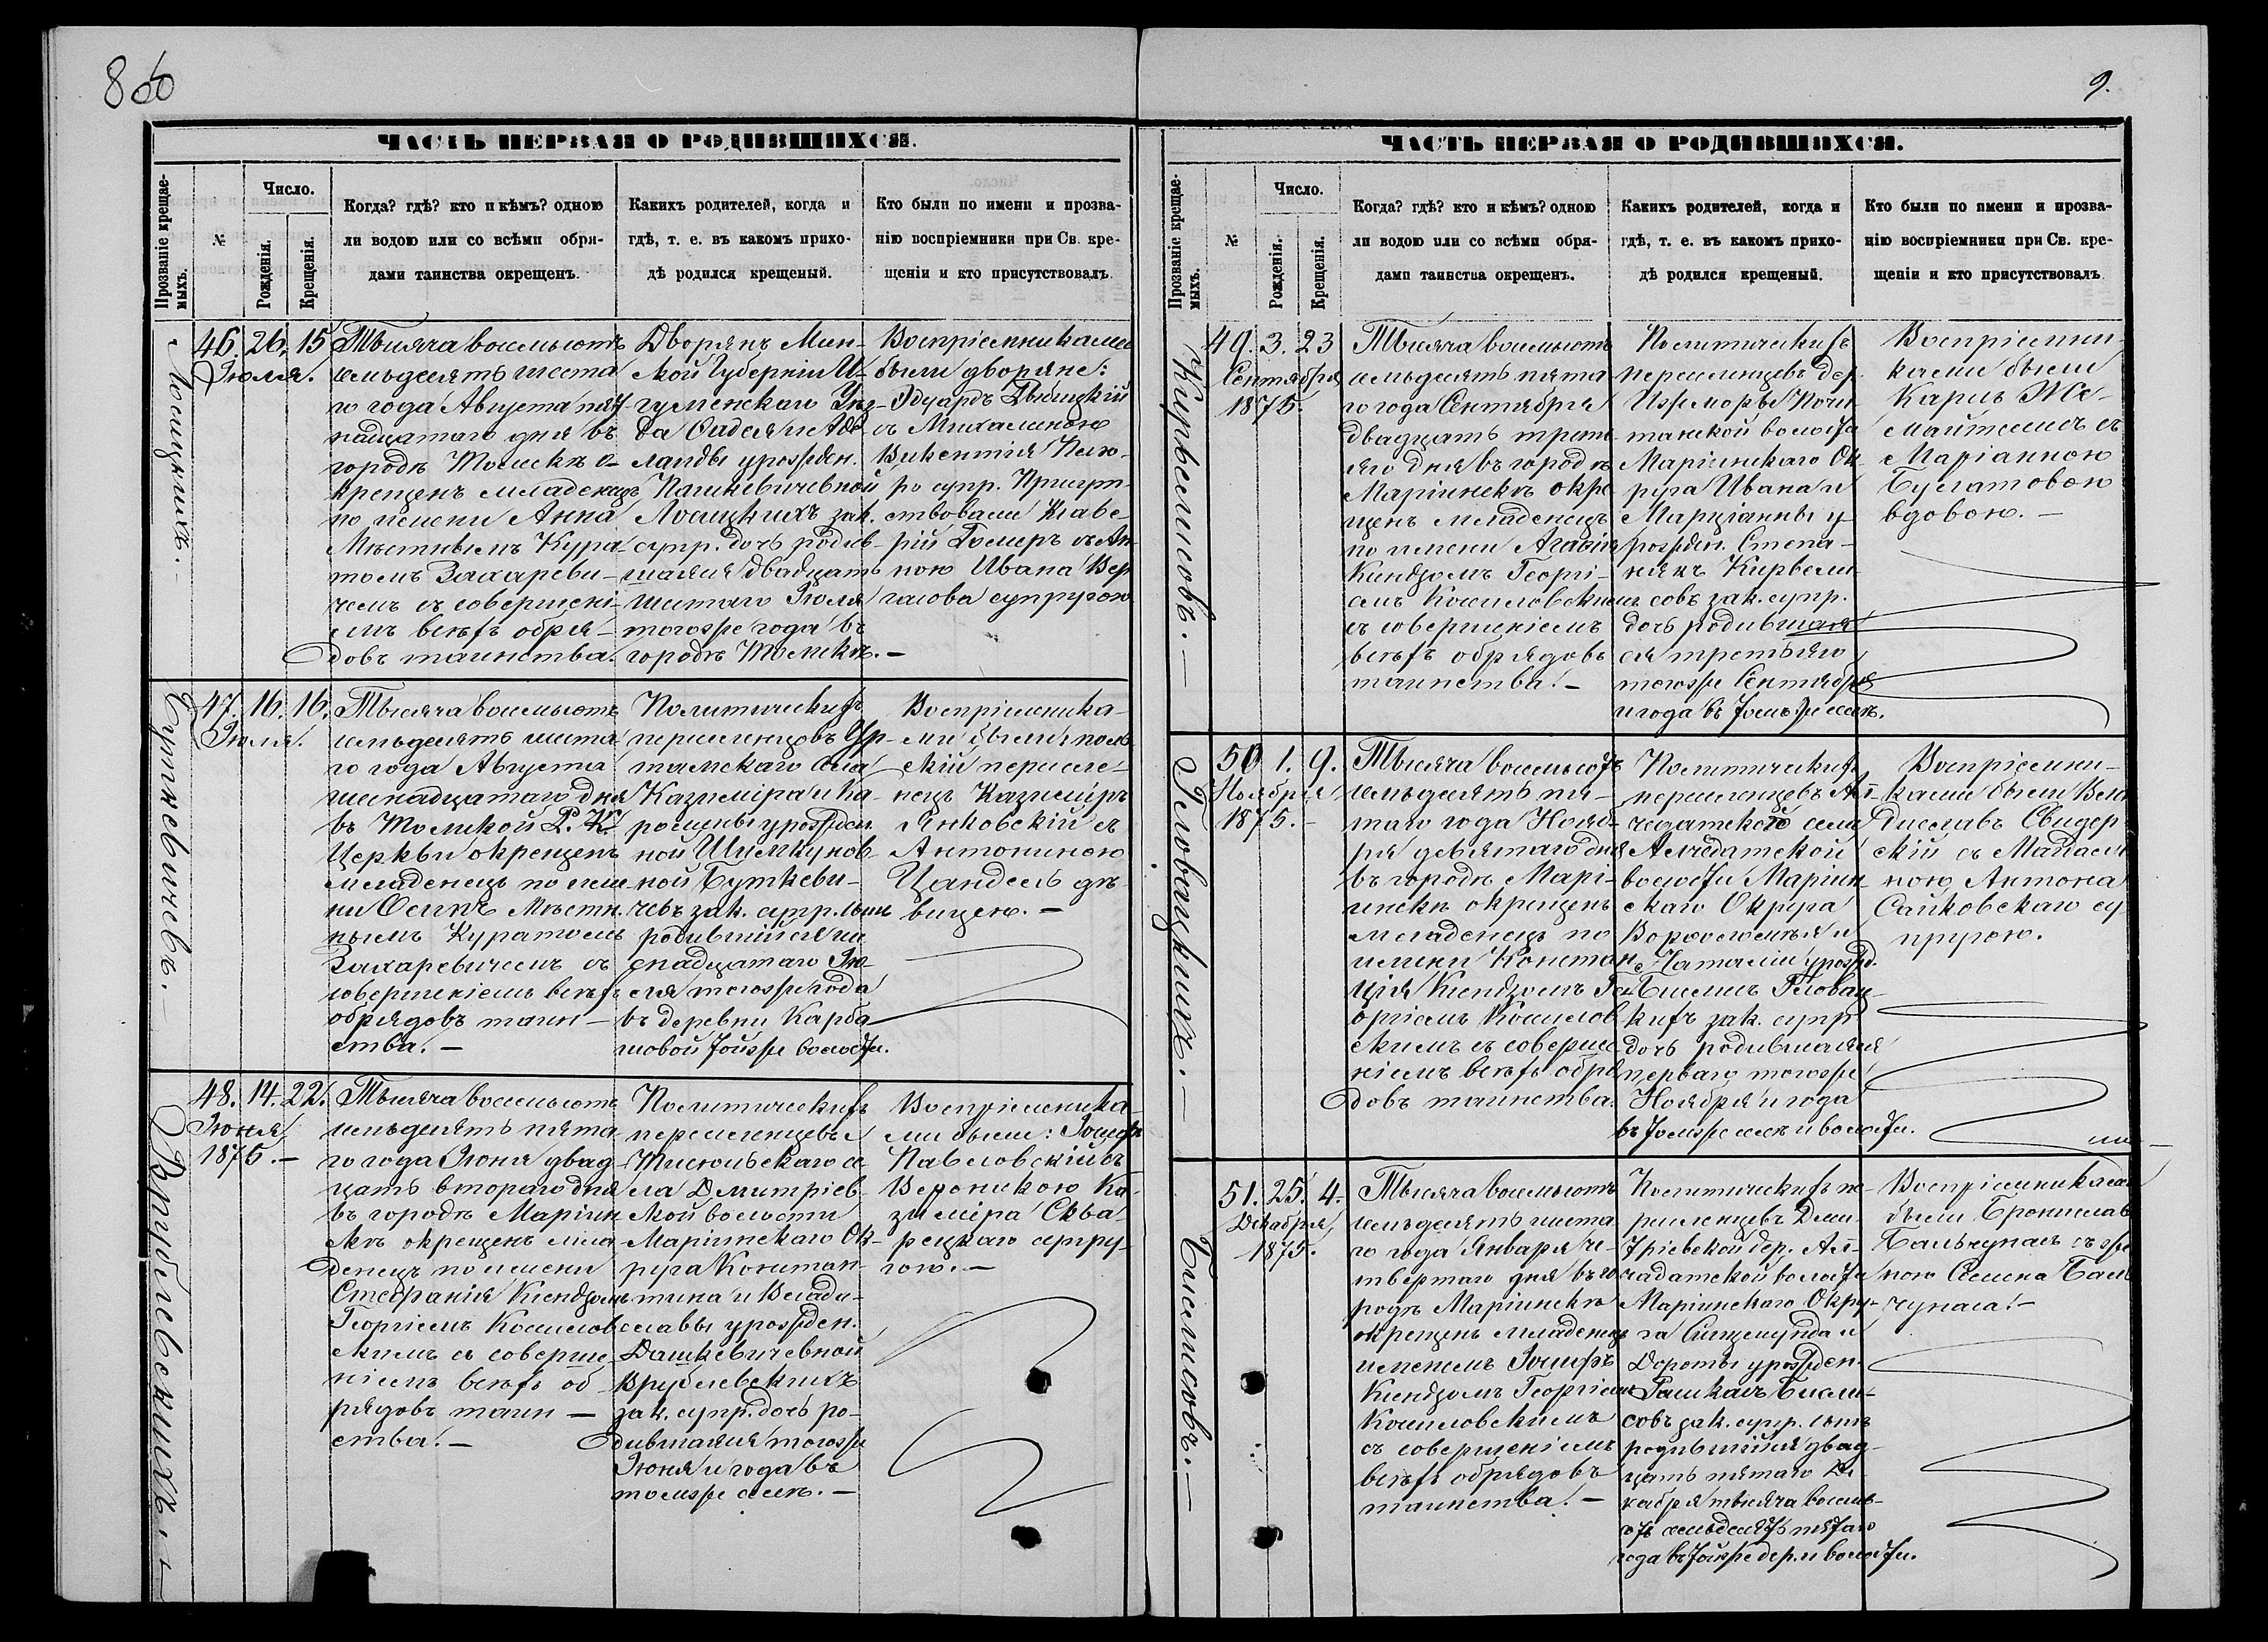 8 об
ЧАСТЬ ПЕРВАЯ О РОДИВШИХСЯ.
Прозваніе крещае-
мыхъ.
№
Число.
Рожденія.
Крещенія.
Когда? гдѣ? кто и кѣмъ? одною
ли водою или со всѣми обря-
дами таинства окрещенъ.
Какихъ родителей, когда и
гдѣ, т. е. въ какомъ прихо-
дѣ родился крещеный.
Кто были по имени и прозва-
нію воспріемники при Св. кре-
щеніи и кто присутствовалъ
46. 26. 15
Іюля.
Тысяча восемьсотъ
семьдесятъ шеста
го года Августа пят-
надцатаго дня въ
городѣ Томскѣ о-
крещенъ младенецъ
по имени Анна
Мѣстнымъ Кура-
томъ Захареви-
чемъ съ совершені-
емъ всѣхъ обря-
довъ таинства.
Дворянъ Мин-
ской Губерніи И-
гуменскаго Уѣз-
да
ланды урожден.
Пашкевичевной
зак.
супр. дочь родив-
шаяся двадцать
шестаго Іюля
тогоже года въ
городѣ Томскѣ.—
Воспріемниками
были дворяне:
Эдуардъ
съ Михалиною
Викентія
супр. Присут-
ствовали Ксаве-
рій Гомеръ съ Ан-
ною Ивана Вер
гасова супругою
Буткевичевъ.
47. 16. 16.
Іюля.
Тысяча восемьсотъ
семьдесятъ шеста
го года Августа
шеснадцатаго дня
въ Томской Р. К.
Церкви окрещенъ
младенецъ по име-
ни Осипъ Мѣстн.
нымъ Куратомъ
Захаревичемъ съ
совершеніемъ всѣхъ
обрядовъ таин—
ства.—
Политическихъ
переселенцовъ Ур-
тамскаго села
Казиміра и Ка-
ролины урожден
ной Шимкунов-
ной Буткеви-
чевъ зак. супр. сынъ
родившійся ше
снадцатаго Ію-
ля тогоже года
въ деревни Карба
шовой тойже волости.
Воспріемника-
ми были поль
скій пересле-
нецъ Казиміръ
Янковскій съ
Антониною
Цандель дѣ-
вицею.—
Врублевскихъ.—
48. 14. 22.
Іюня
1875.—
Тысяча восемьсотъ
семьдесятъ пята-
го года Іюня двад
цать втораго дня
въ городѣ Маріин
скѣ окрещенъ мла
денецъ по имени
Стефанія Ксендзомъ
Георгіемъ Кошилов
скимъ съ соверше-
ніемъ всѣхъ об-
рядовъ таин—
ства.—
Политическихъ
переселенцевъ
Тисюльскаго се
ла Дмитріев-
ской волости
Маріинскаго Ок-
руга Констан-
тина и Влади-
славы урожден.
Дашкевичевной
Врублевскихъ
зак. супр. дочь ро-
дившаяся тогоже
Іюня и года въ
томже селѣ.—
Воспріемника-
ми были: Іосифъ
Павловскій съ
Вероникою Ка-
зиміра Сква-
рецкаго супру-
гою.—
9.
ЧАСТЬ ПЕРВАЯ О РОДИВШИХСЯ.
Прозваніе крещае-
мыхъ.
№
Число.
Рожденія.
Крещенія.
Когда? гдѣ? кто и кѣмъ? одною
ли водою или со всѣми обря-
дами таинства окрещенъ.
Какихъ родителей, когда и
гдѣ, т. е. въ какомъ прихо-
дѣ родился крещеный.
Кто были по имени и прозва-
нію воспріемники при Св. кре-
щеніи и кто присутствовалъ
Кирвелисовъ.—
49. 3. 23
Сентября
1875.
Тысяча восемьсотъ
семьдесятъ пята-
го года Сентября
двадцать треть-
яго дня въ городѣ
Маріинскѣ окре
щенъ младенецъ
по имени
Ксендзомъ Георгі-
емъ Кошиловскимъ
съ совершеніемъ
всѣхъ обрядовъ
таинства.—
Политическихъ
переселенцевъ дер.
Почи
танской волости
Маріинскаго Ок
руга Ивана и
Марціанны у
рожден. Степа-
някъ Кирвели-
совъ зак. супр.
дочь родившая
ся третьяго
тогоже Сентября
и года въ томъже селѣ.
Воспріемни
ками были
Карлъ Же-
майтелисъ съ
Маріанною
Булатовою
вдовою.—
Гловацкихъ.—
50 1. 9.
Ноября
1875.—
Тысяча восемьсотъ
семьдесятъ пя-
таго года Нояб-
ря девятаго дня
въ городѣ Марі-
инскѣ окрещенъ
младенецъ по
имени Констан
ція Ксендзомъ Ге
оргіемъ Кошилов
скимъ съ соверше
ніемъ всѣхъ обря
довъ таинства.
Политическихъ
переселенцевъ Ал-
чедатскаго села
Алчедатской
волости Маріин
скаго Округа
Варфоломея и
Наталіи урожд.
Гловац-
кихъ зак. супр
дочь родившаяся
перваго тогоже
Ноября и года
въ томже селѣ и волости.
Воспріемни-
ками были Вла
диславъ Свидер
скій съ Магдали
ною Антона
Сайковскаго су
пругою.
Блажисовъ.—
51. 25. 4.
Декабря
1875.
Тысяча восемьсотъ
семьдесятъ шеста
го года Января че-
твертаго дня въ го
родѣ Маріинскѣ
окрещенъ младенецъ
именемъ Іосифъ
Ксендзомъ Георгіемъ
Кошиловскимъ
съ совершеніемъ
всѣхъ обрядовъ
таинства.—
Политическихъ пе-
реселенцевъ Дми-
тріевской дер. Ал-
чадатской волости
Маріинскаго Окру-
га Сигизмунда и
Дороты урожден.
зак. супр. сынъ
родившійся двад-
цать пятаго Де-
кабря тысяча восемь-
сотъ семьдесятъ пятаго
года въ тойже дер. и волости.
Воспріемниками
были Брониславъ
Бальчунасъ съ же
ною Семена Баль
чунаса.—